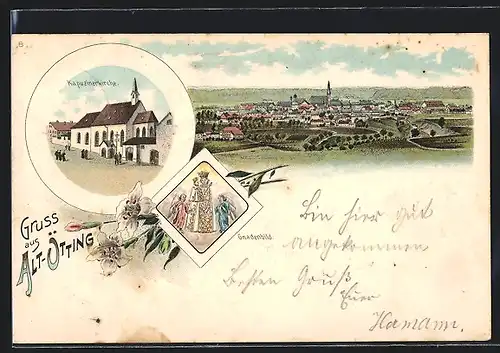 B
Kapuzinerkirche.
Gnadenbild.
Gruss
aus
ALT-ÖTTING
Bin hier gut
angekommen
Besten Gruß
Euer
Hamann.